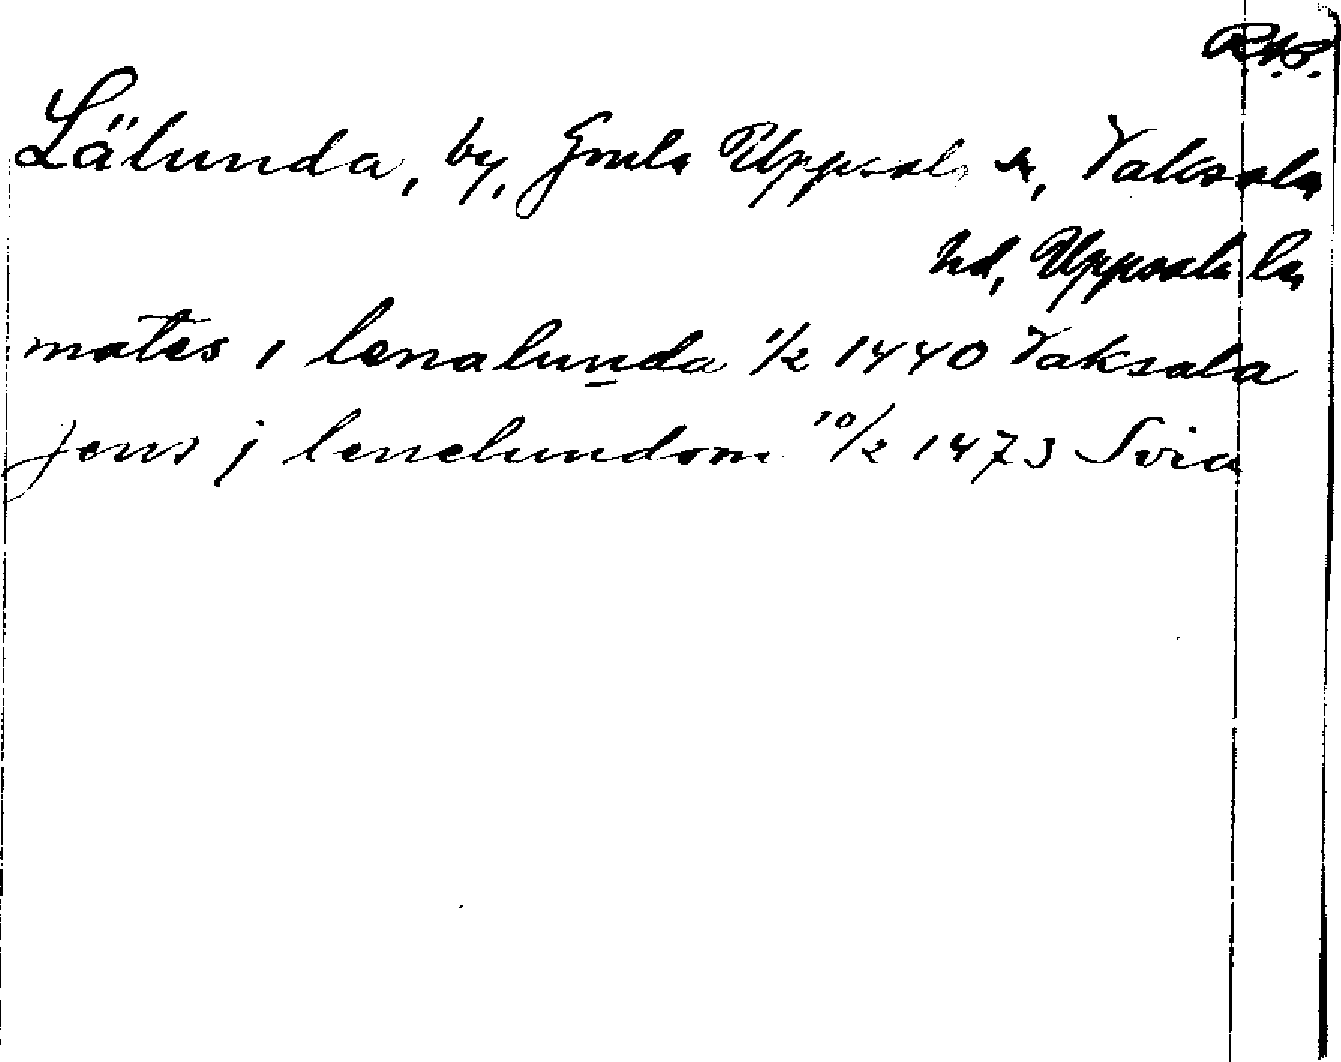 R.A.P.
Lälunda, by, Gamla Uppsala sn, Vaksala
hd, Uppsala län
mates i lenalunda 1/2 1440 Vaksala
jens j lenelundom 10/2 1473 Svia